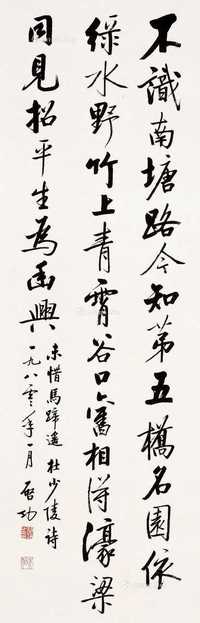 不識南塘路今知第五橋名園依
綠水野竹上青霄谷口舊相得濠梁
同見招平生為幽興
未惜馬蹄遙 杜少陵詩
一九八零年一月 啟功